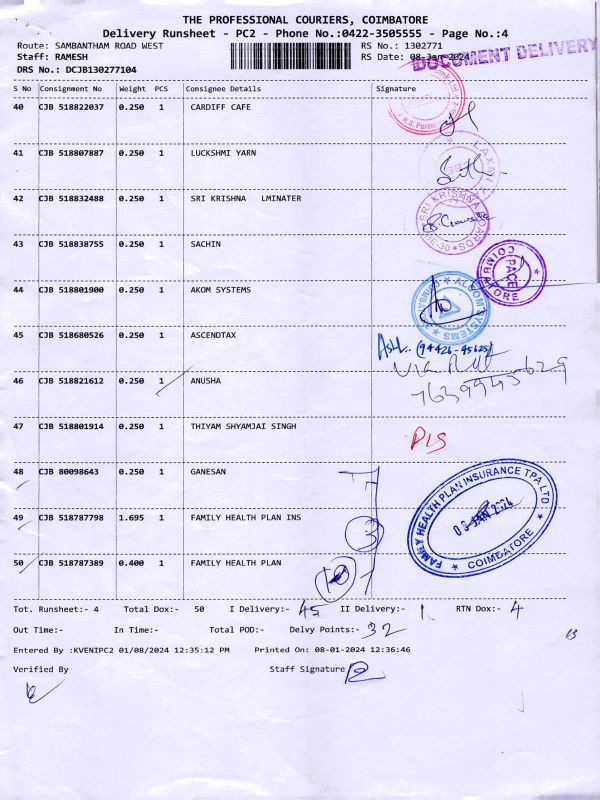 THE PROFESSIONAL COURIERS, COIMBATORE
Delivery Runsheet - PC2 - Phone No.:0422-3505555 - Page No.:4
Route: SAMBANTHAM ROAD WEST RS No.: 1302771
Staff: RAMESH RS Date: 08-Jan-2024
DOCUMENT DELIVERY
DRS No.: DCJB130277104
S No Consignment No Weight PCS Consignee Details Signature
40 CJB 518822037 0.250 1 CARDIFF CAFE
41 CJB 518807887 0.250 1 LUCKSHMI YARN
42 CJB 518832488 0.250 1 SRI KRISHNA LMINATER
SRI KRISHNA BOARDS
43 CJB 518838755 0.250 1 SACHIN
PACE
COIMBATORE
44 CJB 518801900 0.250 1 AKOM SYSTEMS
45 CJB 518680526 0.250 1 ASCENDTAX
(94426-45625)
46 CJB 518821612 0.250 1 ANUSHA
7639945629
47 CJB 518801914 0.250 1 THIYAM SHYAMJAI SINGH
PLS
48 CJB 80098643 0.250 1 GANESAN
FAMILY HEALTH PLAN INSURANCE TPA LTD
JAN 2024
COIMBATORE
49 CJB 518787798 1.695 1 FAMILY HEALTH PLAN INS
50 CJB 518787389 0.400 1 FAMILY HEALTH PLAN
Tot. Runsheet:- 4 Total Dox:- 50 I Delivery:- 45 II Delivery:- 1 RTN Dox:- 4
Out Time:- In Time:- Total POD:- Delvy Points:- 32
Entered By :KVENIPC2 01/08/2024 12:35:12 PM Printed On: 08-01-2024 12:36:46
Verified By Staff Signature